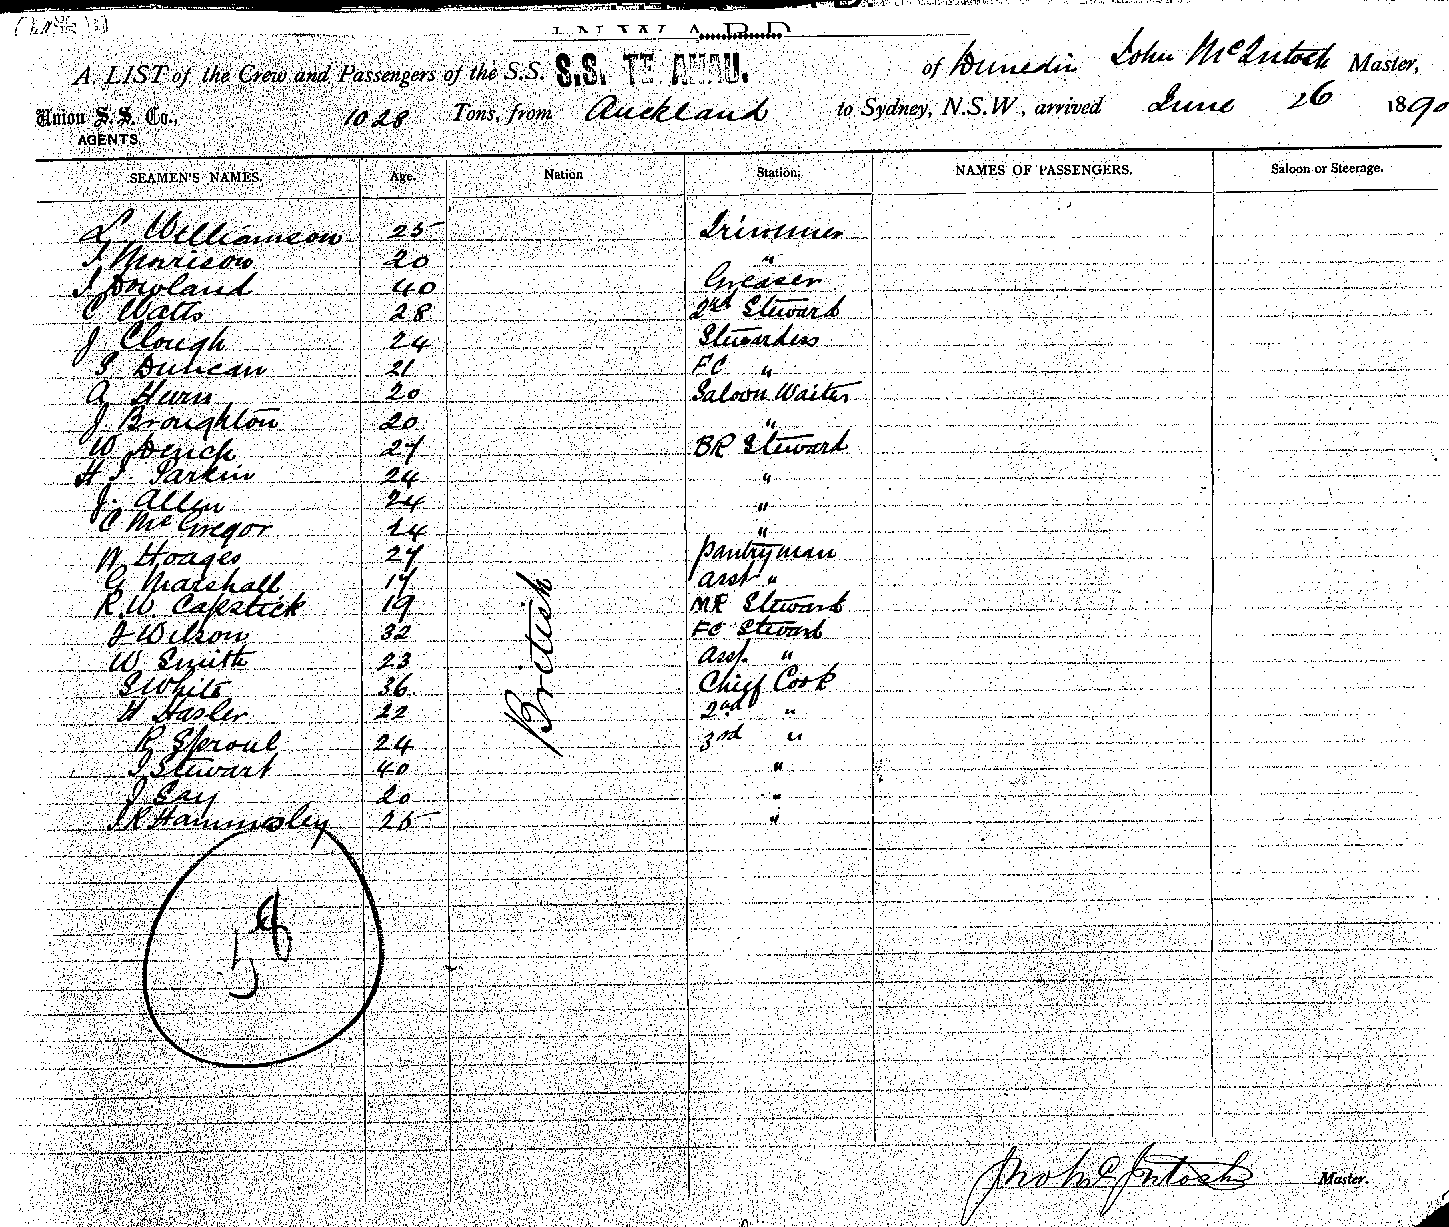 INWARD
A LIST of the Crew and Passengers of the S.S. S.S. TE ANAU. of Dunedin John McIntosh Master,
Union S.S. Co., 1028 Tons, from Auckland to Sydney, N.S.W, arrived June 26 1890
AGENTS
SEAMEN'S NAMES. Age. Nation Station. NAMES OF PASSENGERS. Saloon or Steerage.
L Williamson 25
Morrison 20 "
Dowland 40 Greaser
C Watts 28 2nd Steward
J Clough 24 Stewardess
S Duncan 21 FC "
A Hurn 20 Saloon Waiter
J Broughton 20 "
W Dench 27 BR Steward
H T. Parkin 24 "
J. Allen 24 "
C McGregor 24 "
W Hoages 27 pantryman
G Marshall 17 asst "
R.W Capstick 19 MR Steward
J Wilson 32 FC Steward
W Smith 23 asst. "
S White 36 Chief Cook
H Hasler 22 2nd "
R Sproul 24 3rd "
Stewart 40 "
J Gay 20 "
Hammesley 25 "
British
58
Jno McIntosh Master.